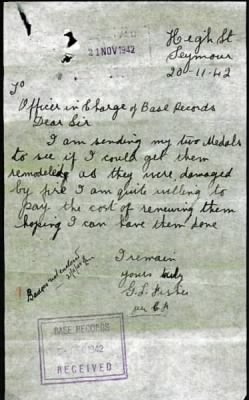 High St
21 NOV 1942
Seymour
20-11-42
To
Officer in Charge of Base Records
Dear Sir
I am sending my two Medals
to see if I could get them
remodeled as they were damaged
by fire I am quite willing to
pay the cost of renewing them
hoping I can have them done
I remain
yours truly
G. L. Fisher
per
BASE RECORDS
1942
RECEIVED